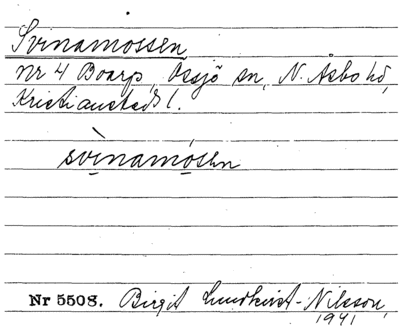 Svinamossen
nr 4 Boarp, Össjö sn, N. Åsbo hd,
Kristianstads l.
svìnamósen
Nr 5508. Birgit Lundkvist-Nilsson,
1941